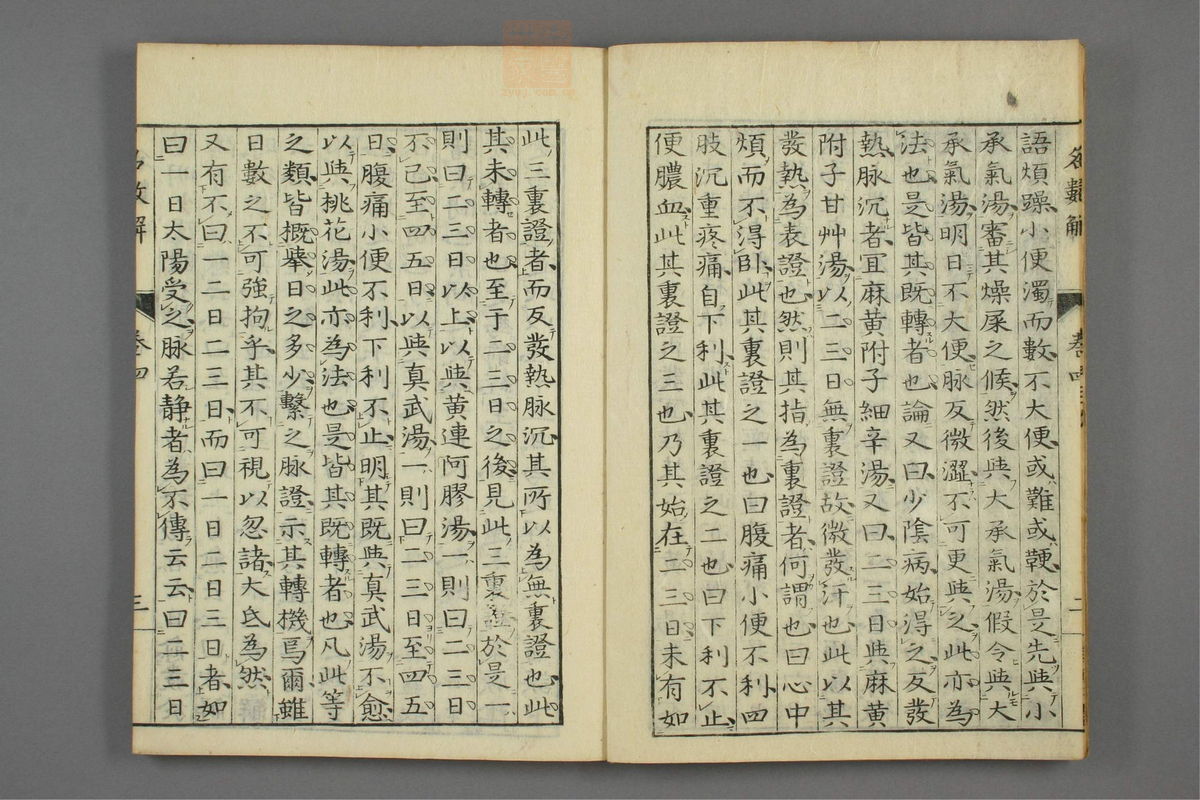 名數解 卷四 二
語煩躁小便濁而數不大便或難或鞕於是先與小
承氣湯審其燥屎之候然後與大承氣湯假令與大
承氣湯明日不大便脉反微澀不可更與之此亦為
法也是皆其既轉者也論又曰少陰病始得之反發
熱脉沉者宜麻黃附子細辛湯又曰二三日與麻黃
附子甘艸湯以二三日無裏證故微發汗也此以其
發熱為表證也然則其指為裏證者何謂也曰心中
煩而不得臥此其裏證之一也曰腹痛小便不利四
肢沉重疼痛自下利此其裏證之二也曰下利不止
便膿血此其裏證之三也乃其始在二三日未有如
此三裏證者而反發熱脉沉其所以為無裏證也此
其未轉者也至于二三日之後見此三裏證於是一
則曰二三日以上以與黃連阿膠湯一則曰二三日
不已至四五日以與真武湯一則曰二三日至四五
日腹痛小便不利下利不止明其既與真武湯不愈
以與桃花湯此亦為法也是皆其既轉者也凡此等
之類皆概舉日之多少繫之脉證示其轉機焉爾雖
日數之不可強拘乎其不可視以忽諸大氐為然
又有不曰一二日二三日而曰一日二日三日者如
曰一日太陽受之脉若靜者為不傳云云曰二三日
名數解 卷四 三